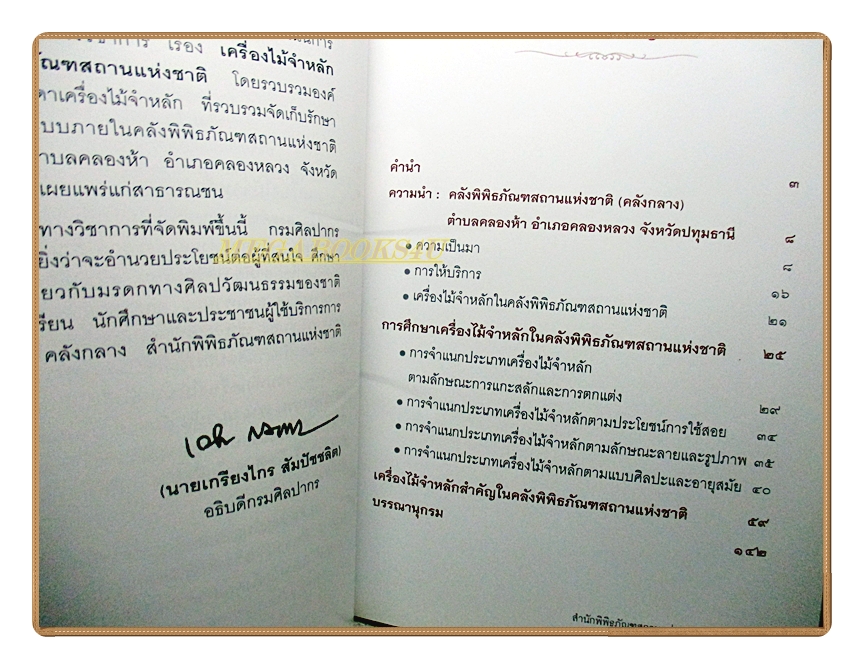 เรื่อง เครื่องไม้จำหลัก
โดยรวบรวมองค์
เครื่องไม้จำหลัก ที่รวบรวมจัดเก็บรักษา
ภายในคลังพิพิธภัณฑสถานแห่งชาติ
คลองห้า อำเภอคลองหลวง จังหวัด
เผยแพร่แก่สาธารณชน
ทางวิชาการที่จัดพิมพ์ขึ้นนี้ กรมศิลปากร
ยิ่งว่าจะอำนวยประโยชน์ต่อผู้ที่สนใจ ศึกษา
กับมรดกทางศิลปวัฒนธรรมของชาติ
นักศึกษาและประชาชนผู้ใช้บริการการ
คลังกลาง สำนักพิพิธภัณฑสถานแห่งชาติ
(นายเกรียงไกร สัมปัชชลิต)
อธิบดีกรมศิลปากร
MEGA BOOKS4U
คำนำ ๓
ความนำ : คลังพิพิธภัณฑสถานแห่งชาติ (คลังกลาง)
ตำบลคลองห้า อำเภอคลองหลวง จังหวัดปทุมธานี ๘
• ความเป็นมา ๘
• การให้บริการ ๑๖
• เครื่องไม้จำหลักในคลังพิพิธภัณฑสถานแห่งชาติ ๒๑
การศึกษาเครื่องไม้จำหลักในคลังพิพิธภัณฑสถานแห่งชาติ ๒๕
• การจำแนกประเภทเครื่องไม้จำหลัก
ตามลักษณะการแกะสลักและการตกแต่ง ๒๙
• การจำแนกประเภทเครื่องไม้จำหลักตามประโยชน์การใช้สอย ๓๔
• การจำแนกประเภทเครื่องไม้จำหลักตามลักษณะลายและรูปภาพ ๓๕
• การจำแนกประเภทเครื่องไม้จำหลักตามแบบศิลปะและอายุสมัย ๔๐
เครื่องไม้จำหลักสำคัญในคลังพิพิธภัณฑสถานแห่งชาติ ๕๙
บรรณานุกรม ๑๔๒